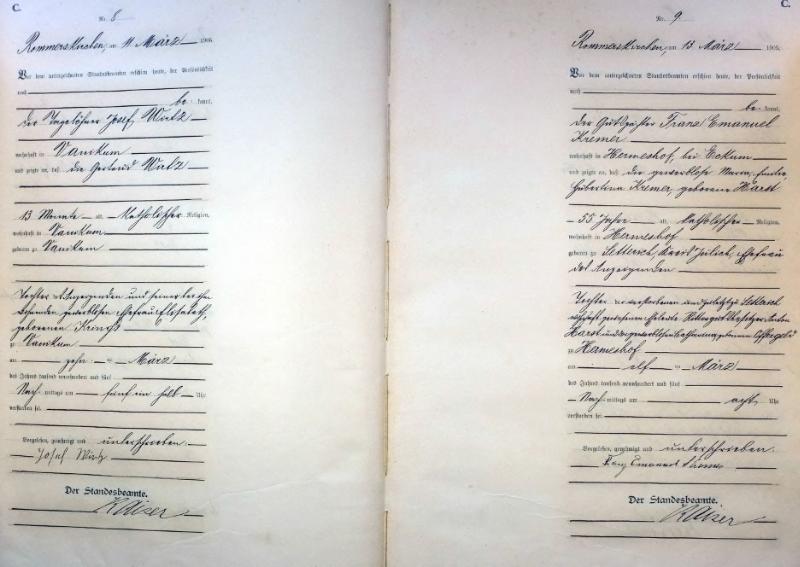 C.
Nr. 8
Rommerskirchen, am 11 März 190
Vor dem unterzeichneten Standesbeamten erschien heute, der Persönlichkeit
nach
be kannt,
der Tagelöhner Josef Wirtz
wohnhaft in Vanikum
und zeigte an, daß die Gertrud Wirtz
13 Monate alt, katholischer Religion,
wohnhaft in Vanikum
geboren zu Vanikum
Tochter Anzeigenden und seiner bei ihm
gewerblosen Ehefrau Elisabeth,
geborenen
zu Vanikum
am zehn März
des Jahres tausend neunhundert und fünf
Nach mittags um fünf ein halb Uhr
verstorben sei.
Vorgelesen, genehmigt und unterschrieben.
Josef Wirtz
Der Standesbeamte.
Kaiser
C.
Nr. 9
Rommerskirchen, am 13 März 190
Vor dem unterzeichneten Standesbeamten erschien heute, der Persönlichkeit
nach
be kannt,
der Gutspächter Franz Emanuel
Kremer
wohnhaft in Hermeshof, bei Eckum
und zeigte an, daß die gewerblose Maria
Hubertina Kremer, geborene Harst
55 Jahre alt, katholischer Religion,
wohnhaft in Hermeshof
geboren zu Setterich, Kreis Jülich, Ehefrau
des Anzeigenden
Tochter verstorbenen zuletzt zu Setterich
Eheleute Rittergutsbesitzer
Harst und gewerblosen geborenen
zu Hermeshof
am elf März
des Jahres tausend neunhundert und fünf
Nach mittags um acht Uhr
verstorben sei.
Vorgelesen, genehmigt und unterschrieben.
Franz Emanuel Kremer
Der Standesbeamte.
Kaiser